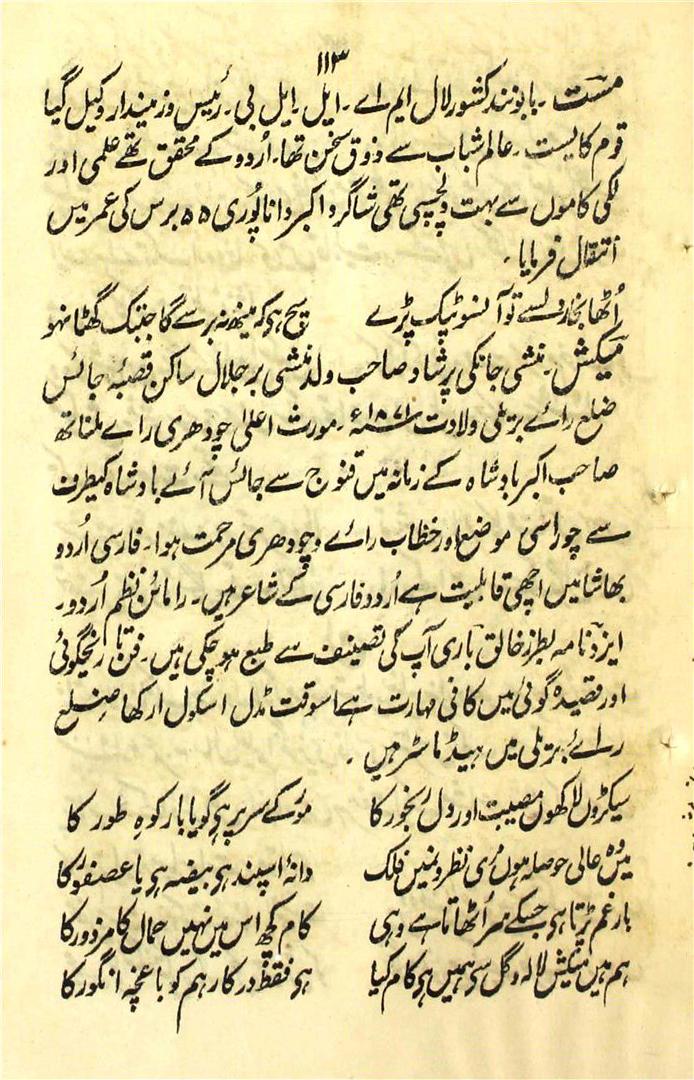 ۱۱۳
مست ۔ بابو نند کشور لال ایم اے ۔ ایل ۔ ایل بی ۔ رئیس وزمیندار وکیل گیا
قوم کایست ۔ عالم شباب سے ذوق سخن تھا ۔ اُردو کے محقق تھے علمی اور
ملکی کاموں سے بہت دلچسپی تھی شاگرد اکبر دانا پُوری ۵۵ برس کی عمر میں
انتقال فرمایا ۔
اُٹھا بخار دلسے تو آنسو ٹپک پڑے سچ ہی کہ مینھ نہ برسے گا جبتک گھٹا نہو
میکش ۔ منشی جانکی پرشاد صاحب ولد منشی برجلال ساکن قصبۂ جائس
ضلع رائے بریلی ولادت ۱۸۷۱ء ۔ مورث اعلیٰ چودھری رائے
صاحب اکبر بادشاہ کے زمانہ میں قنوج سے جائس آئے بادشاہ کیطرف
سے چوراسی موضع اور خطاب رائے و چودھری مرحمت ہوا ۔ فارسی اُردو
بھاشا میں اچھی قابلیت ہے اُردو فارسی کے شاعر ہیں ۔ رامائن نظم اُردو ۔
ایزد نامہ بطرز خالق باری آپ کی تصنیف سے طبع ہو چکی ہیں ۔ فن تاریخگوئی
اور قصیدہ گوئی میں کافی مہارت ہے اسوقت مڈل اسکول ارکھا ضلع
رائے بریلی میں ہیڈ ماسٹر ہیں ۔
سیکڑوں لاکھوں مصیبت اور دل رنجور کا مور کے سر پر ہی گویا بار کوہِ طور کا
میں وہ عالی حوصلہ ہوں مری نظرونمیں فلک دانۂ اسپند ہی بیضہ ہی یا عصفور کا
بار غم پڑتا ہی جسکے سر اُٹھاتا ہے وہی کام کچھ اس میں نہیں حمال کا مزدور کا
ہم ہیں میکش لالہ و گل سی ہمیں ہی کام کیا ہی فقط درکار ہم کو باغچہ انگور کا